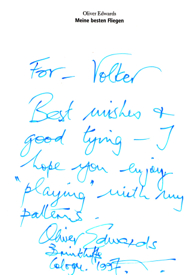 Oliver Edwards
Meine besten Fliegen
For - Volker
Best wishes &
good tying - I
hope you enjoy
"playing" with my
patterns.
Oliver Edwards
Cologne. 1997.